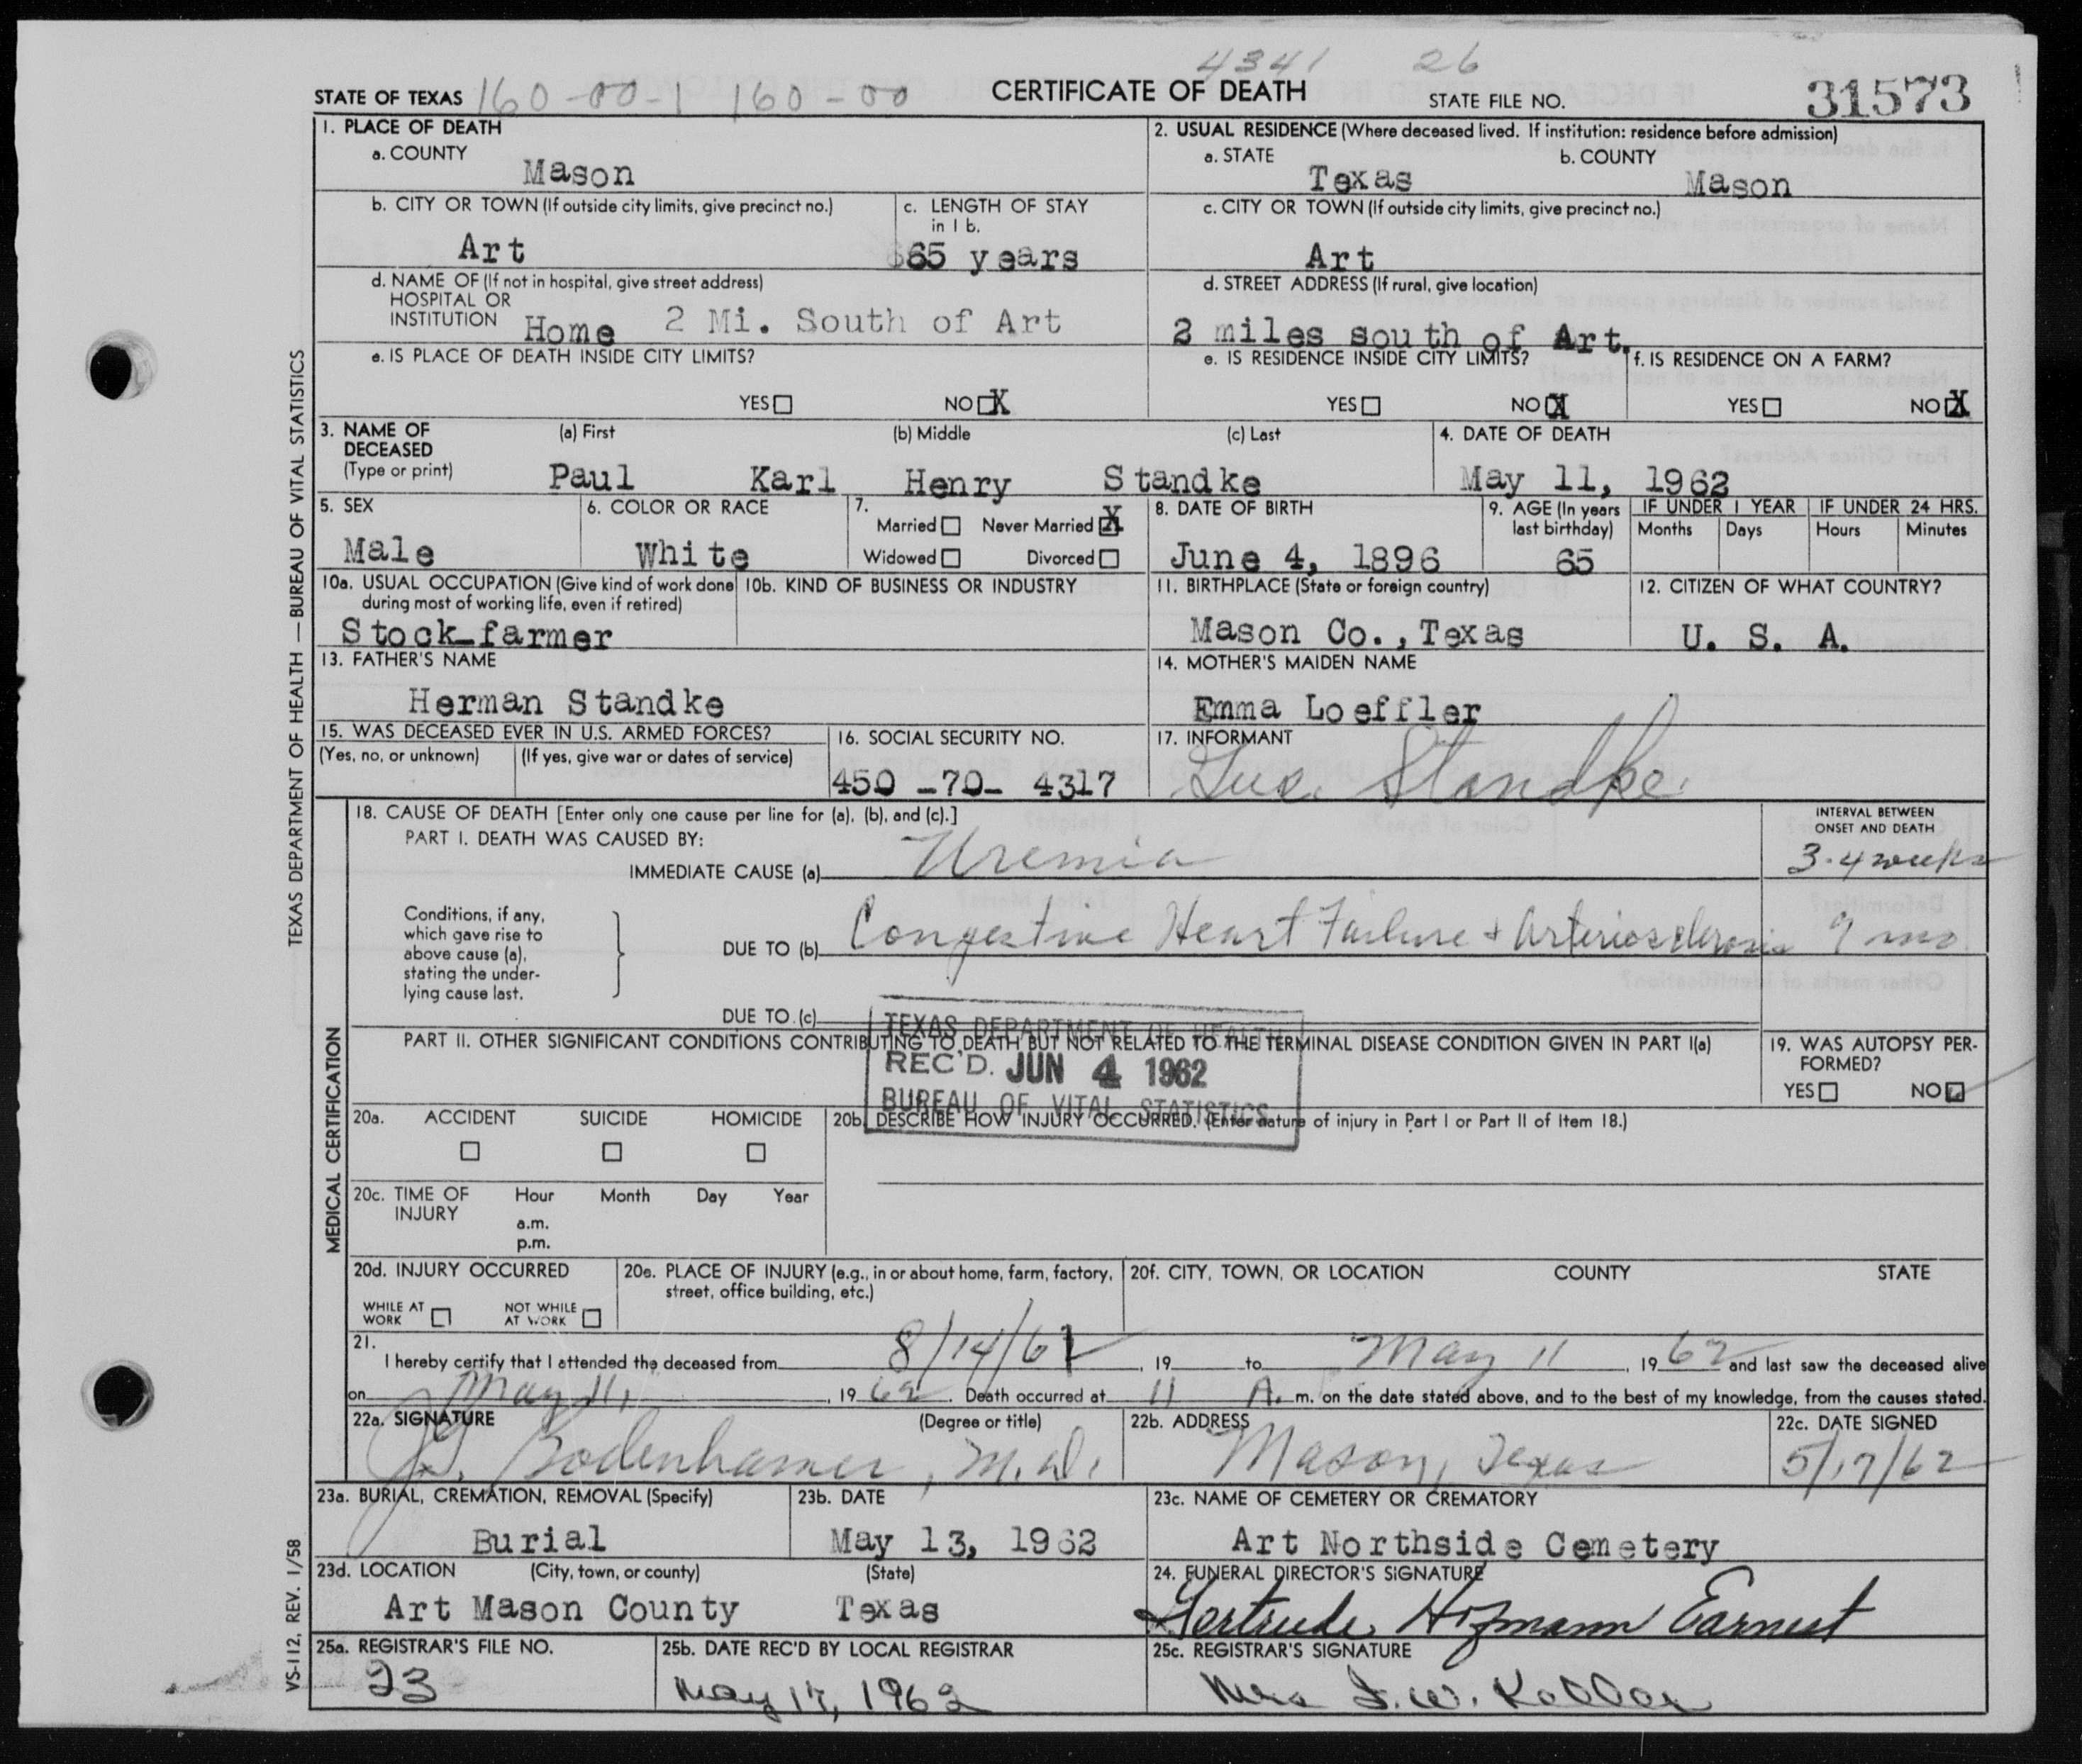 4341 26
STATE OF TEXAS 160-00-1 160-00 CERTIFICATE OF DEATH STATE FILE NO. 31573
1. PLACE OF DEATH
a. COUNTY
Mason
2. USUAL RESIDENCE (Where deceased lived. If institution: residence before admission)
a. STATE b. COUNTY
Texas Mason
b. CITY OR TOWN (If outside city limits, give precinct no.)
Art
c. LENGTH OF STAY
in 1 b.
65 years
c. CITY OR TOWN (If outside city limits, give precinct no.)
Art
d. NAME OF (If not in hospital, give street address)
HOSPITAL OR
INSTITUTION Home 2 Mi. South of Art
d. STREET ADDRESS (If rural, give location)
2 miles south of Art.
e. IS PLACE OF DEATH INSIDE CITY LIMITS?
YES☐ NO☐X
e. IS RESIDENCE INSIDE CITY LIMITS?
YES☐ NO☐X
f. IS RESIDENCE ON A FARM?
YES☐ NO☐X
3. NAME OF (a) First (b) Middle (c) Last
DECEASED
(Type or print) Paul Karl Henry Standke
4. DATE OF DEATH
May 11, 1962
5. SEX
Male
6. COLOR OR RACE
White
7.
Married ☐ Never Married ☐X
Widowed ☐ Divorced ☐
8. DATE OF BIRTH
June 4, 1896
9. AGE (In years
last birthday)
65
IF UNDER 1 YEAR
Months Days
IF UNDER 24 HRS.
Hours Minutes
10a. USUAL OCCUPATION (Give kind of work done
during most of working life, even if retired)
Stock-farmer
10b. KIND OF BUSINESS OR INDUSTRY
11. BIRTHPLACE (State or foreign country)
Mason Co., Texas
12. CITIZEN OF WHAT COUNTRY?
U. S. A.
13. FATHER'S NAME
Herman Standke
14. MOTHER'S MAIDEN NAME
Emma Loeffler
15. WAS DECEASED EVER IN U.S. ARMED FORCES?
(Yes, no, or unknown) (If yes, give war or dates of service)
16. SOCIAL SECURITY NO.
450 -70- 4317
17. INFORMANT
Gus. Standke.
18. CAUSE OF DEATH [Enter only one cause per line for (a), (b), and (c).]
PART I. DEATH WAS CAUSED BY:
INTERVAL BETWEEN
ONSET AND DEATH
IMMEDIATE CAUSE (a) Uremia 3-4 weeks
Conditions, if any,
which gave rise to
above cause (a),
stating the under-
lying cause last.
DUE TO (b) Congestive Heart Failure + Arteriosclerosis 9 mo
DUE TO (c)
TEXAS DEPARTMENT OF HEALTH
REC'D. JUN 4 1962
BUREAU OF VITAL STATISTICS
PART II. OTHER SIGNIFICANT CONDITIONS CONTRIBUTING TO DEATH BUT NOT RELATED TO THE TERMINAL DISEASE CONDITION GIVEN IN PART I(a)
19. WAS AUTOPSY PER-
FORMED?
YES☐ NO☑
20a. ACCIDENT SUICIDE HOMICIDE
☐ ☐ ☐
20b. DESCRIBE HOW INJURY OCCURRED. (Enter nature of injury in Part I or Part II of Item 18.)
20c. TIME OF Hour Month Day Year
INJURY
a.m.
p.m.
20d. INJURY OCCURRED
WHILE AT
WORK ☐
NOT WHILE
AT WORK ☐
20e. PLACE OF INJURY (e.g., in or about home, farm, factory,
street, office building, etc.)
20f. CITY, TOWN, OR LOCATION COUNTY STATE
21.
I hereby certify that I attended the deceased from 8/14/61, 19 to May 11, 1962 and last saw the deceased alive
on May 11, 1962. Death occurred at 11 A.m. on the date stated above, and to the best of my knowledge, from the causes stated.
22a. SIGNATURE (Degree or title)
Bodenhamer, M.D.
22b. ADDRESS
Mason, Texas
22c. DATE SIGNED
5/17/62
23a. BURIAL, CREMATION, REMOVAL (Specify)
Burial
23b. DATE
May 13, 1962
23c. NAME OF CEMETERY OR CREMATORY
Art Northside Cemetery
23d. LOCATION (City, town, or county) (State)
Art Mason County Texas
24. FUNERAL DIRECTOR'S SIGNATURE
Gertrude Earnest
25a. REGISTRAR'S FILE NO.
23
25b. DATE REC'D BY LOCAL REGISTRAR
May 17, 1962
25c. REGISTRAR'S SIGNATURE
Mrs
TEXAS DEPARTMENT OF HEALTH — BUREAU OF VITAL STATISTICS
MEDICAL CERTIFICATION
VS-112, REV. 1/58